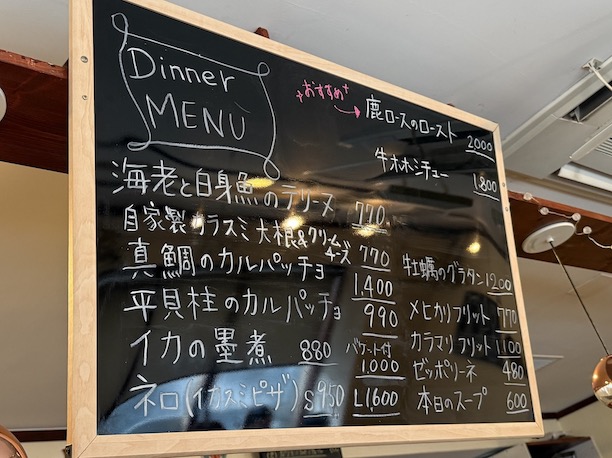 Dinner
MENU
おすすめ
鹿ロースのロースト 2,000
牛ホホシチュー 1,800
海老と白身魚のテリーヌ 770
自家製カラスミ大根&クリームチーズ 770
真鯛のカルパッチョ 1,400
平貝柱のカルパッチョ 990
イカの墨煮 880 バケット付 1,000
ネロ(イカスミピザ) S950 L1,600
牡蠣のグラタン 1200
メヒカリフリット 770
カラマリフリット 1,100
ゼッポリーネ 480
本日のスープ 600